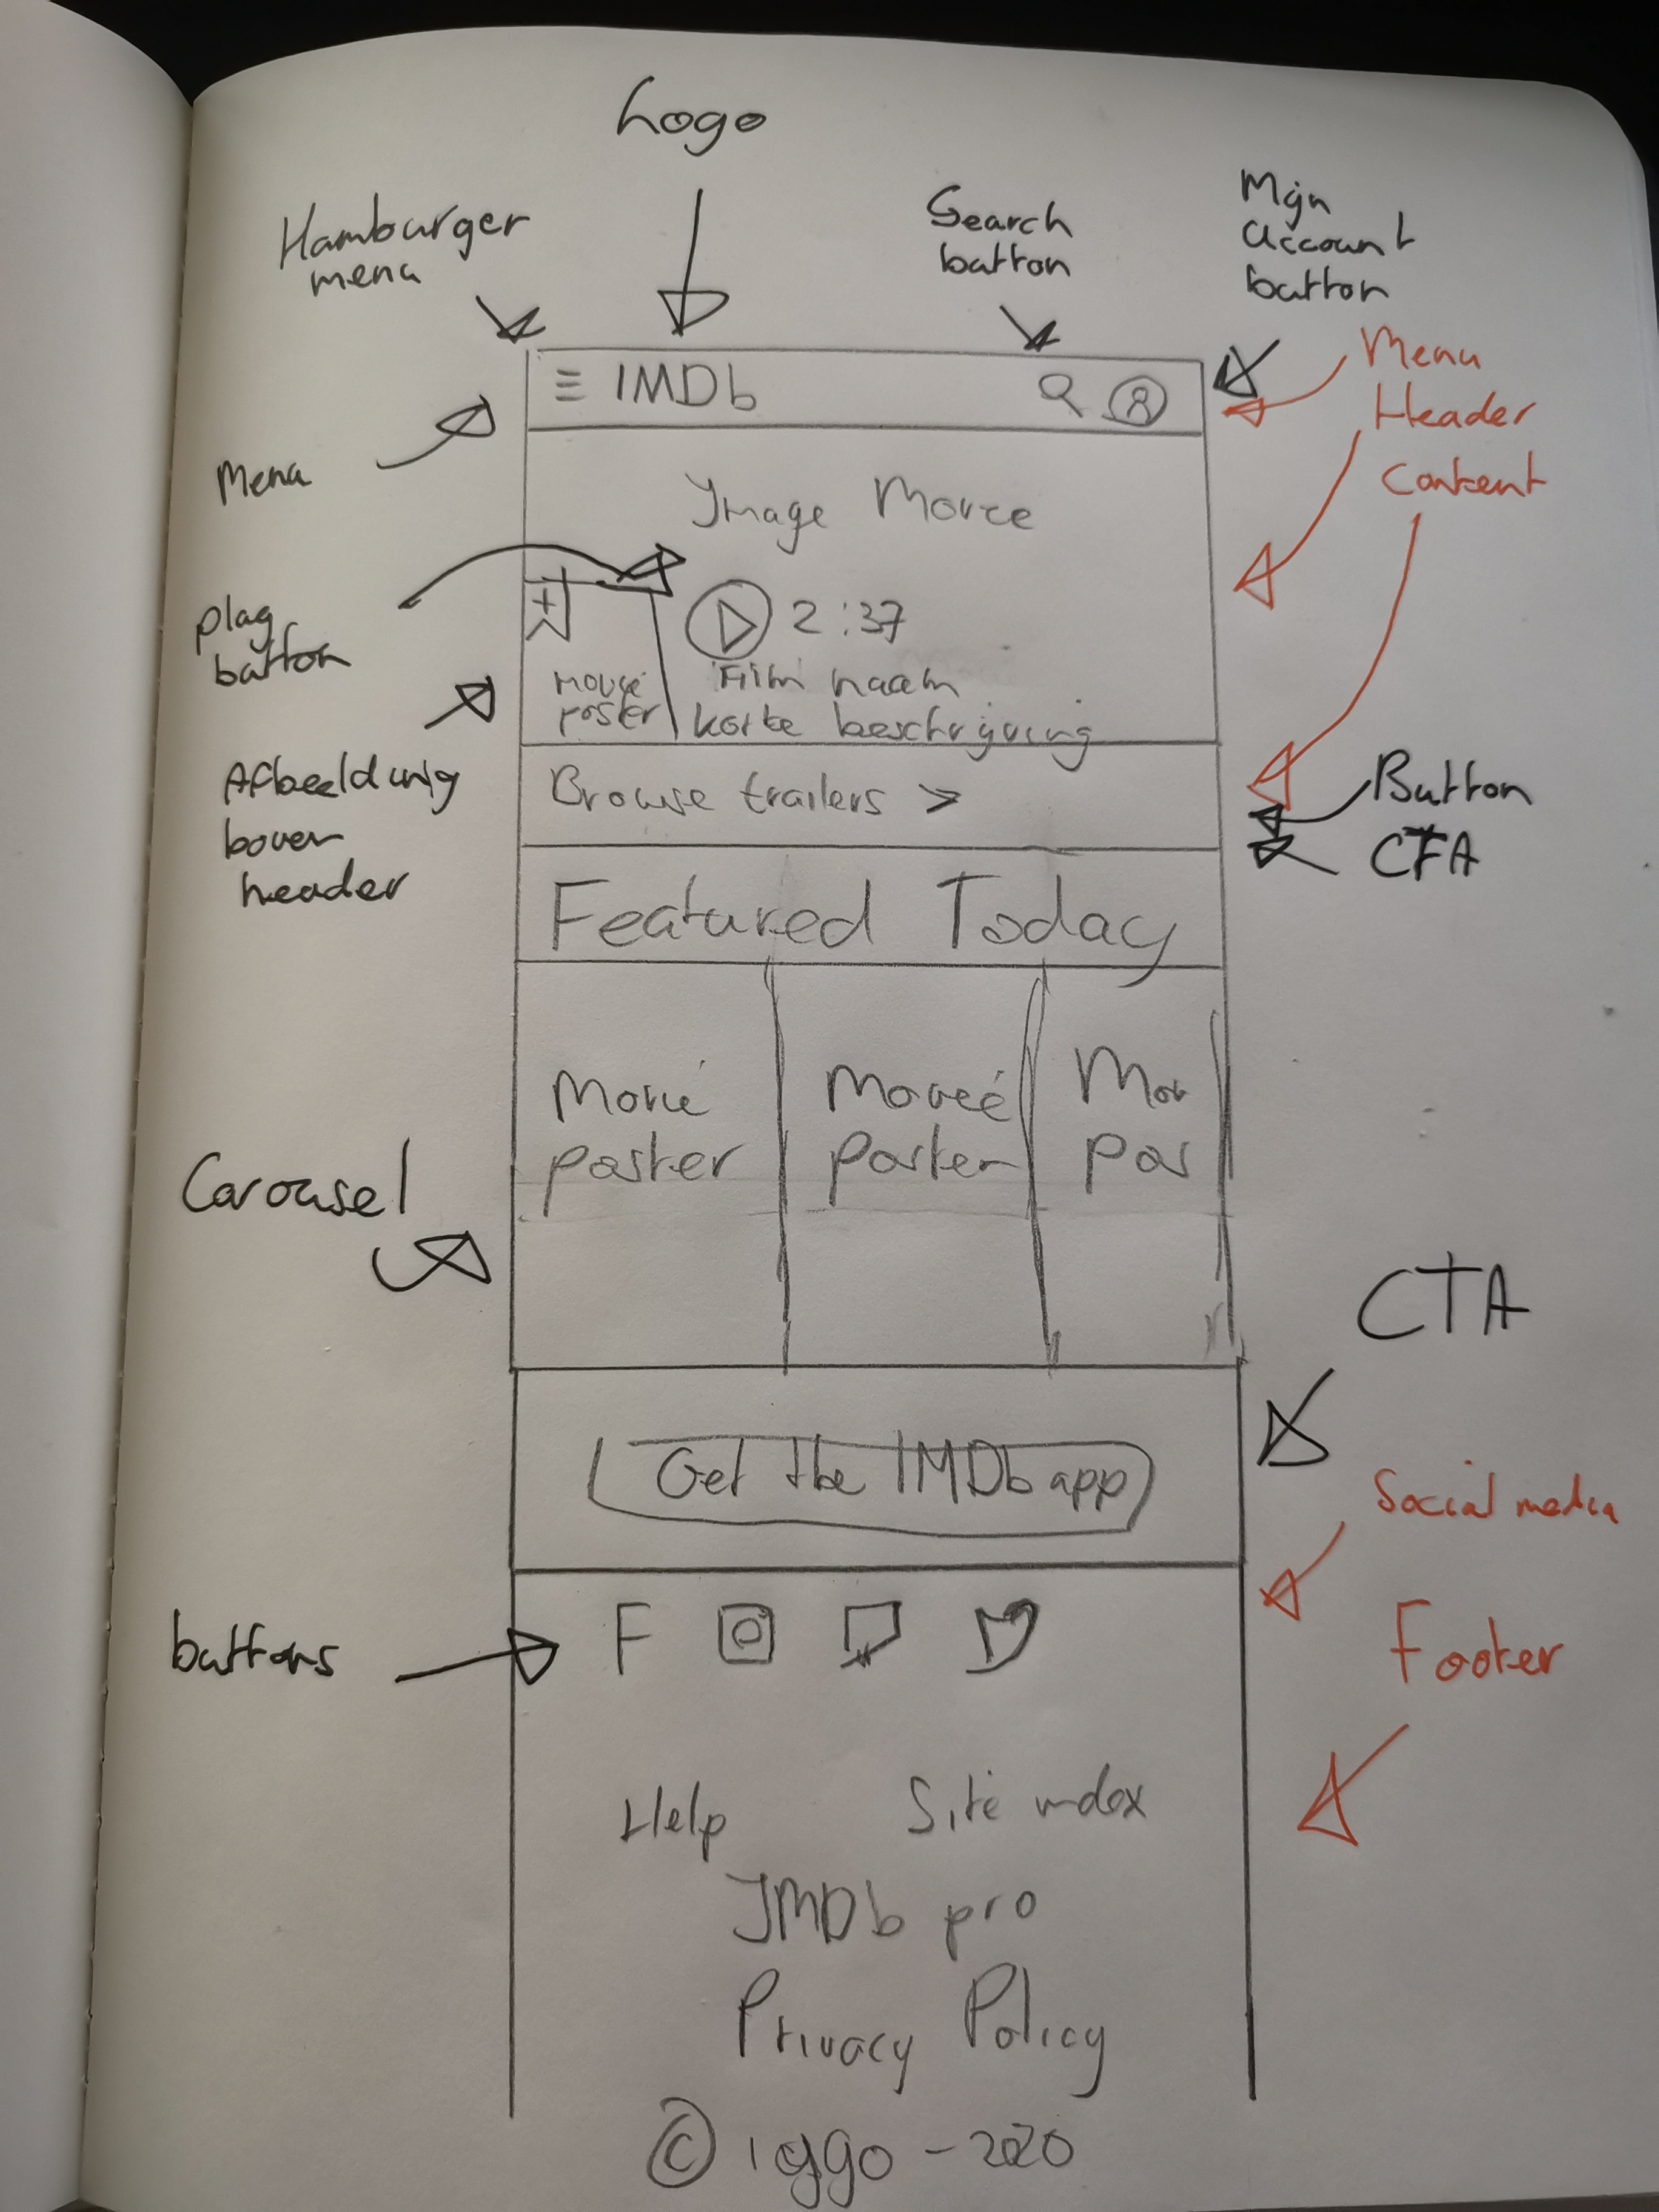 Logo
Hamburger
menu
Search
button
Mijn
account
button
Menu
Header
Content
IMDb
Menu
Image Movie
play
button
+
2:37
Movie
poster
Film naam
korte beschrijving
Afbeelding
boven
header
Browse trailers >
Button
CTA
Featured Today
Movie
poster
Movie
poster
Mov
pos
Carousel
CTA
Get the IMDb app
Social media
buttons
F
Footer
Help
Site index
IMDb pro
Privacy Policy
© 1990 - 2020